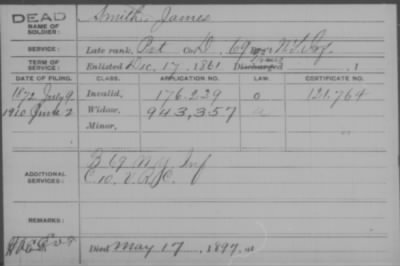 DEAD
NAME OF SOLDIER: Smith, James
SERVICE: Late rank, Pvt Co. D, 69 N.Y. Inf.
TERM OF SERVICE: Enlisted Dec. 17, 1861 Discharged , 1
DATE OF FILING. CLASS. APPLICATION NO. LAW. CERTIFICATE NO.
1872 July 9 Invalid, 176.229 121.764
1910 June 2 Widow, 943,357 a
Minor,
ADDITIONAL SERVICES: B 69 N.Y. Inf
C. 10. V.R.C.
REMARKS:
Died May 17, 1897, at